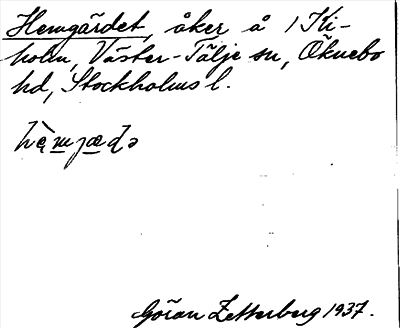 Hemgärdet, åker å 1 Ki-
holm, Väster-Tälje sn, Öknebo
hd, Stockholms l.
Göran Zetterberg 1937.